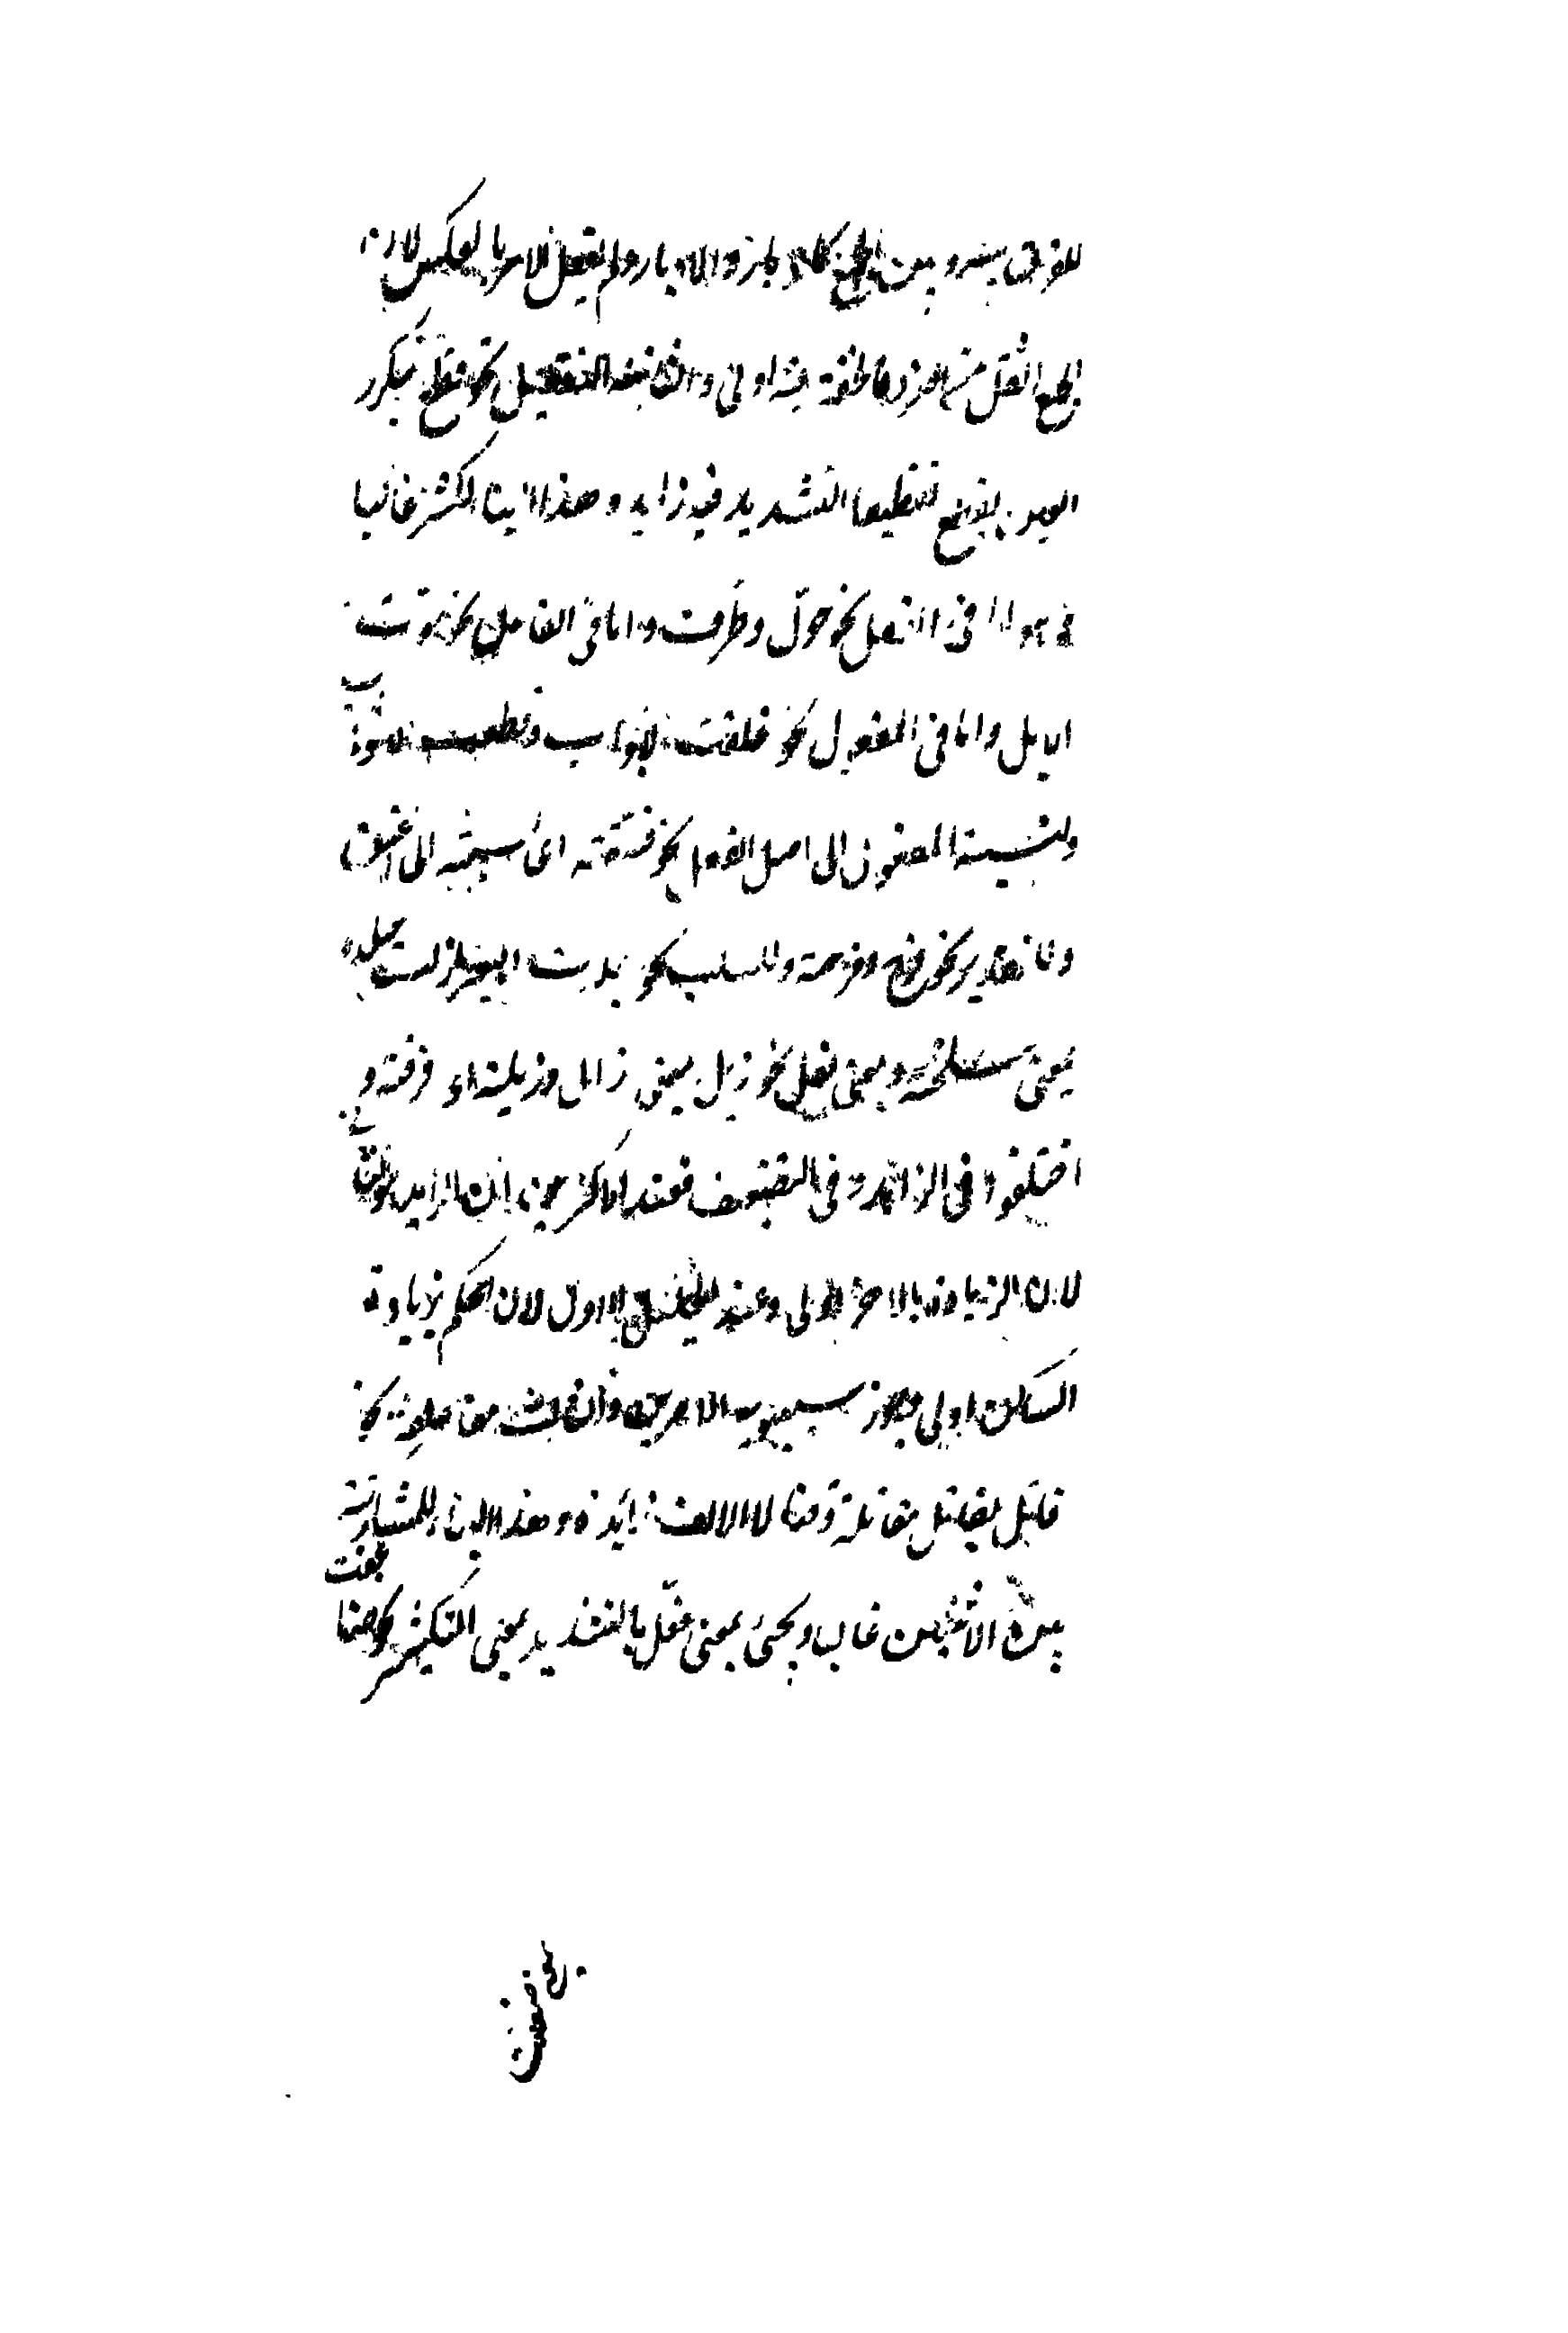 للفرق بينه و بين الجمع كالادبار والادبار ولم يفعل الامر بالعكس لان
الجمع اثقل من المفرد فالخفة فيه اولى والثانية التفعيل نحو قطع بتكرر
العين يقطع تقطيعا التشديد فيه زايد وهذا البنا للكثير غالبا
اما فى الفعل نحو جول وطوفت واما فى الفاعل نحو موتت
الابل واما فى المفعول نحو غلقت الابواب وقطعت الاثواب
ولنسبة المفعول الى اصل الفعل نحو فسقته اى نسبته الى الفسق
وللتعدية نحو فرح وفرحته وللسلب نحو جلدت البعير ازلت جلده
بمعنى سلخته وبمعنى فعل نحو زيل بمعنى زال وزيلته اى فرقته و
اختلفوا فى الزائد فى التضعيف فعند الاكثرين ان الزايد هو الثانى
لان الزيادة بالاخر اولى وعند الخليل الاول لان الحكم بزيادة
الساكن اولى وجوز سيبويه الامرين والثالث مفاعلة نحو
قاتل يقاتل مقاتلة وقتالا الالف زائدة وهذا البناء للمشاركة
بين الاثنين غالبا ويجئ بمعنى فعل بالتشديد بمعنى التكثير نحو ضاعفت